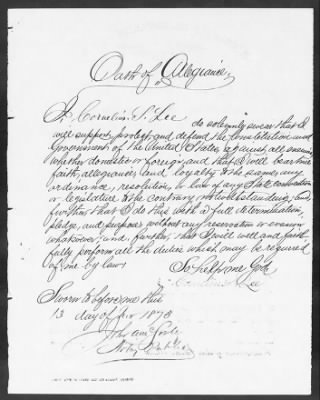 Oath of Allegiance
I, Cornelius S. Lee do solemnly swear that I
will support, protect, and defend the Constitution and
Government of the United States, against all enemies,
whether domestic or foreign, and that I will bear true
faith, allegiance, and loyalty to the same, any
ordinance, resolution, or law of any State convention
or legislature to the contrary notwithstanding; and
further, that I do this with a full determination,
pledge, and purpose, without any reservation or evasion
whatsoever; and further, that I will well and faith
fully perform all the duties which may be required
of me by law.
So help me God
Lee
Sworn to before me this
13 day of 1878
Notary Public